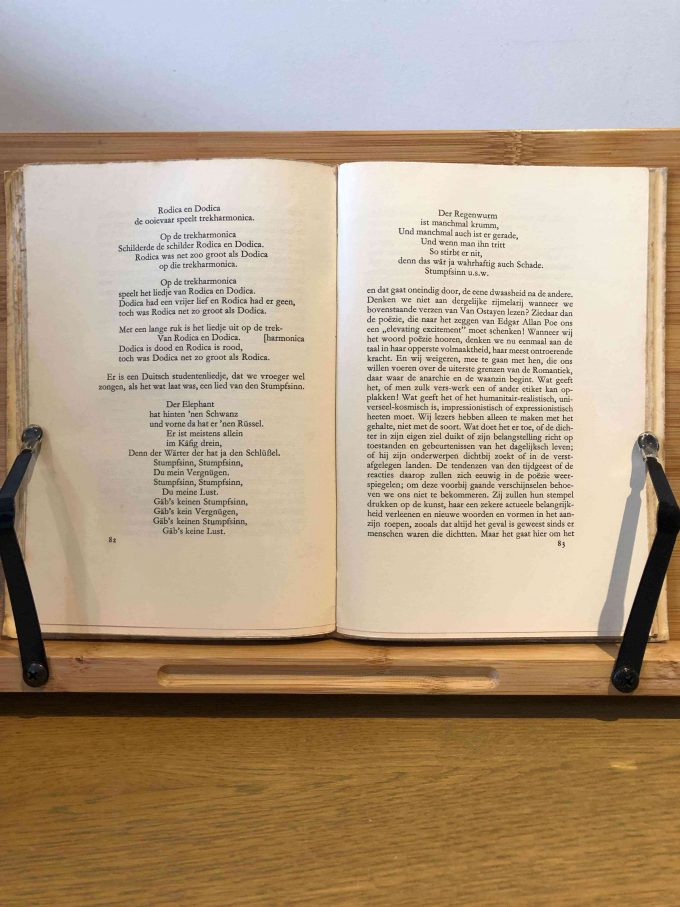 Rodica en Dodica
de ooievaar speelt trekharmonica.
Op de trekharmonica
Schilderde de schilder Rodica en Dodica.
Rodica was net zoo groot als Dodica
op die trekharmonica.
Op de trekharmonica
speelt het liedje van Rodica en Dodica.
Dodica had een vrijer lief en Rodica had er geen,
toch was Rodica net zo groot als Dodica.
Met een lange ruk is het liedje uit op de trek-
Van Rodica en Dodica. [harmonica
Dodica is dood en Rodica is rood,
toch was Dodica net zo groot als Rodica.
Er is een Duitsch studentenliedje, dat we vroeger wel
zongen, als het wat laat was, een lied van den Stumpfsinn.
Der Elephant
hat hinten 'nen Schwanz
und vorne da hat er 'nen Rüssel.
Er ist meistens allein
im Käfig drein,
Denn der Wärter der hat ja den Schlüßel.
Stumpfsinn, Stumpfsinn,
Du mein Vergnügen.
Stumpfsinn, Stumpfsinn,
Du meine Lust.
Gäb's keinen Stumpfsinn,
Gäb's kein Vergnügen,
Gäb's keinen Stumpfsinn,
Gäb's keine Lust.
82
Der Regenwurm
ist manchmal krumm,
Und manchmal auch ist er gerade,
Und wenn man ihn tritt
So stirbt er nit,
denn das wär ja wahrhaftig auch Schade.
Stumpfsinn u.s.w.
en dat gaat oneindig door, de eene dwaasheid na de andere.
Denken we niet aan dergelijke rijmelarij wanneer we
bovenstaande verzen van Van Ostayen lezen? Ziedaar dan
de poëzie, die naar het zeggen van Edgar Allan Poe ons
een „elevating excitement” moet schenken! Wanneer wij
het woord poëzie hooren, denken we nu eenmaal aan de
taal in haar opperste volmaaktheid, haar meest ontroerende
kracht. En wij weigeren, mee te gaan met hen, die ons
willen voeren over de uiterste grenzen van de Romantiek,
daar waar de anarchie en de waanzin begint. Wat geeft
het, of men zulk vers-werk een of ander etiket kan op-
plakken! Wat geeft het of het humanitair-realistisch, uni-
verseel-kosmisch is, impressionistisch of expressionistisch
heeten moet. Wij lezers hebben alleen te maken met het
gehalte, niet met de soort. Wat doet het er toe, of de dich-
ter in zijn eigen ziel duikt of zijn belangstelling richt op
toestanden en gebeurtenissen van het dagelijksch leven;
of hij zijn onderwerpen dichtbij zoekt of in de verst-
afgelegen landen. De tendenzen van den tijdgeest of de
reacties daarop zullen zich eeuwig in de poëzie weer-
spiegelen; om deze voorbij gaande verschijnselen behoe-
ven we ons niet te bekommeren. Zij zullen hun stempel
drukken op de kunst, haar een zekere actueele belangrijk-
heid verleenen en nieuwe woorden en vormen in het aan-
zijn roepen, zooals dat altijd het geval is geweest sinds er
menschen waren die dichtten. Maar het gaat hier om het
83